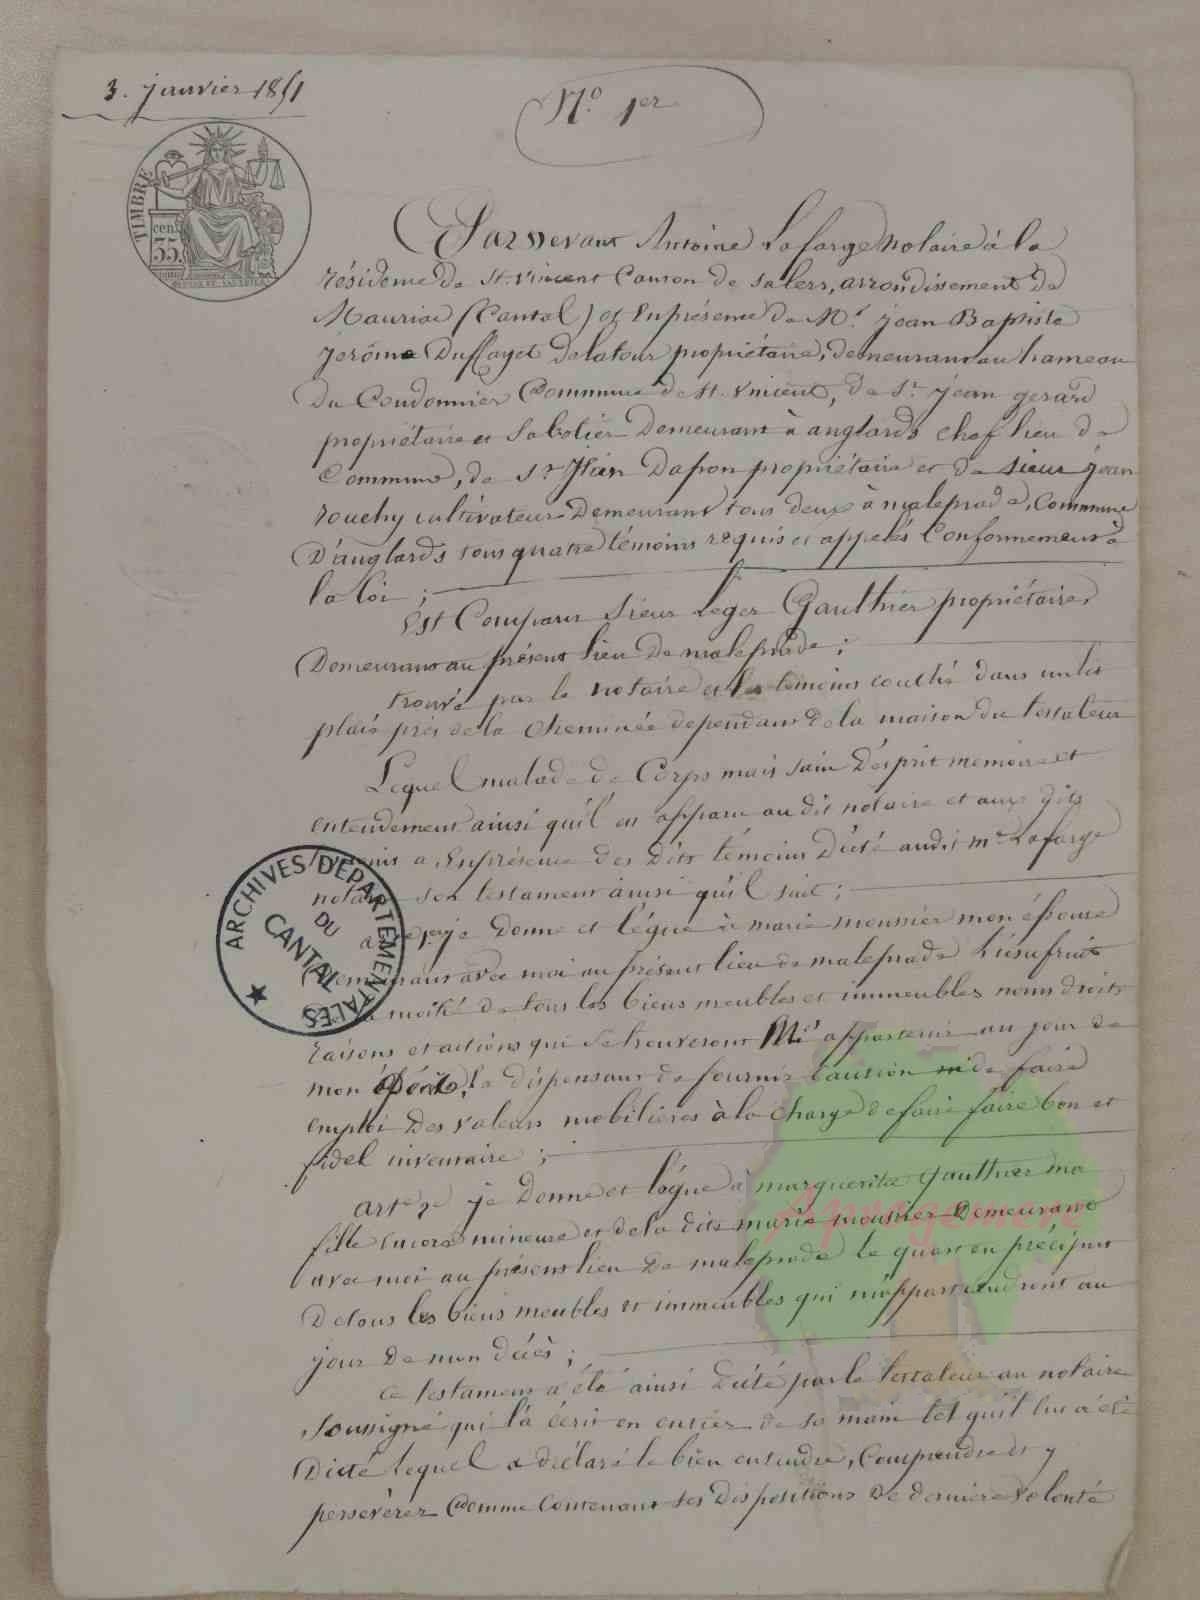 3. janvier 1851
N.o 1er
TIMBRE
cen.
35.
Pardevant Antoine Lafarge notaire à la
résidence de St. Vincent Canton de Salers, arrondissement de
Mauriac (Cantal) et En présence de Mr. jean Baptiste
jerôme Duffayet Delatour propriétaire, demeurant au hameau
Du Coudonnier Commune de St. Vincent, de Sr. jean gerard
propriétaire et Sabotier Demeurant à anglards chef lieu de
Commune, de Sr. Dafon propriétaire et de sieur jean
rouchy cultivateur Demeurant tous deux à maleprade, Commune
D'anglards tous quatre témoins requis et appelés Conformement à
la loi ;
Est Comparu Sieur Leger Gauthier propriétaire
Demeurant au présent lieu De maleprade ;
trouvé par le notaire et les témoins couché dans un lit
placé près de la cheminée dependant de la maison du testateur
Lequel malade de Corps mais sain D'esprit memoire et
entendement ainsi qu'il est apparu au dit notaire et aux dits
témoins a En présence des Dits témoins Dicté audit me. Lafarge
notaire son testament ainsi qu'il suit ;
art. 1er je Donne et légue à marie mousnier mon épouse
Demeurant avec moi au présent lieu de maleprade L'usufruit
de la moitié de tous les biens meubles et immeubles noms droits
raisons et actions qui se trouveront M'i appartenir au jour de
mon Décès, la dispensant de fournir caution ni de faire
emploi Des valeurs mobilières à la charge de faire faire bon et
fidel inventaire ;
art. 2e je Donne et légue à marguerite gauthier ma
fille encore mineure et de la Dite marie mousnier Demeurant
avec moi au présent lieu De maleprade le quart en préciput
De tous les biens meubles et immeubles qui m'appartiendront au
jour De mon décès ;
Ce testament a été ainsi Dicté par le testateur au notaire
Soussigné qui l'à écrit en entier de sa main tel qu'il lui a été
Dicté lequel a déclaré le bien entendre, Comprendre et y
persévérer Comme Contenant ses Dispositions De derniere volonté
ARCHIVES DÉPARTEMENTALES
DU
CANTAL